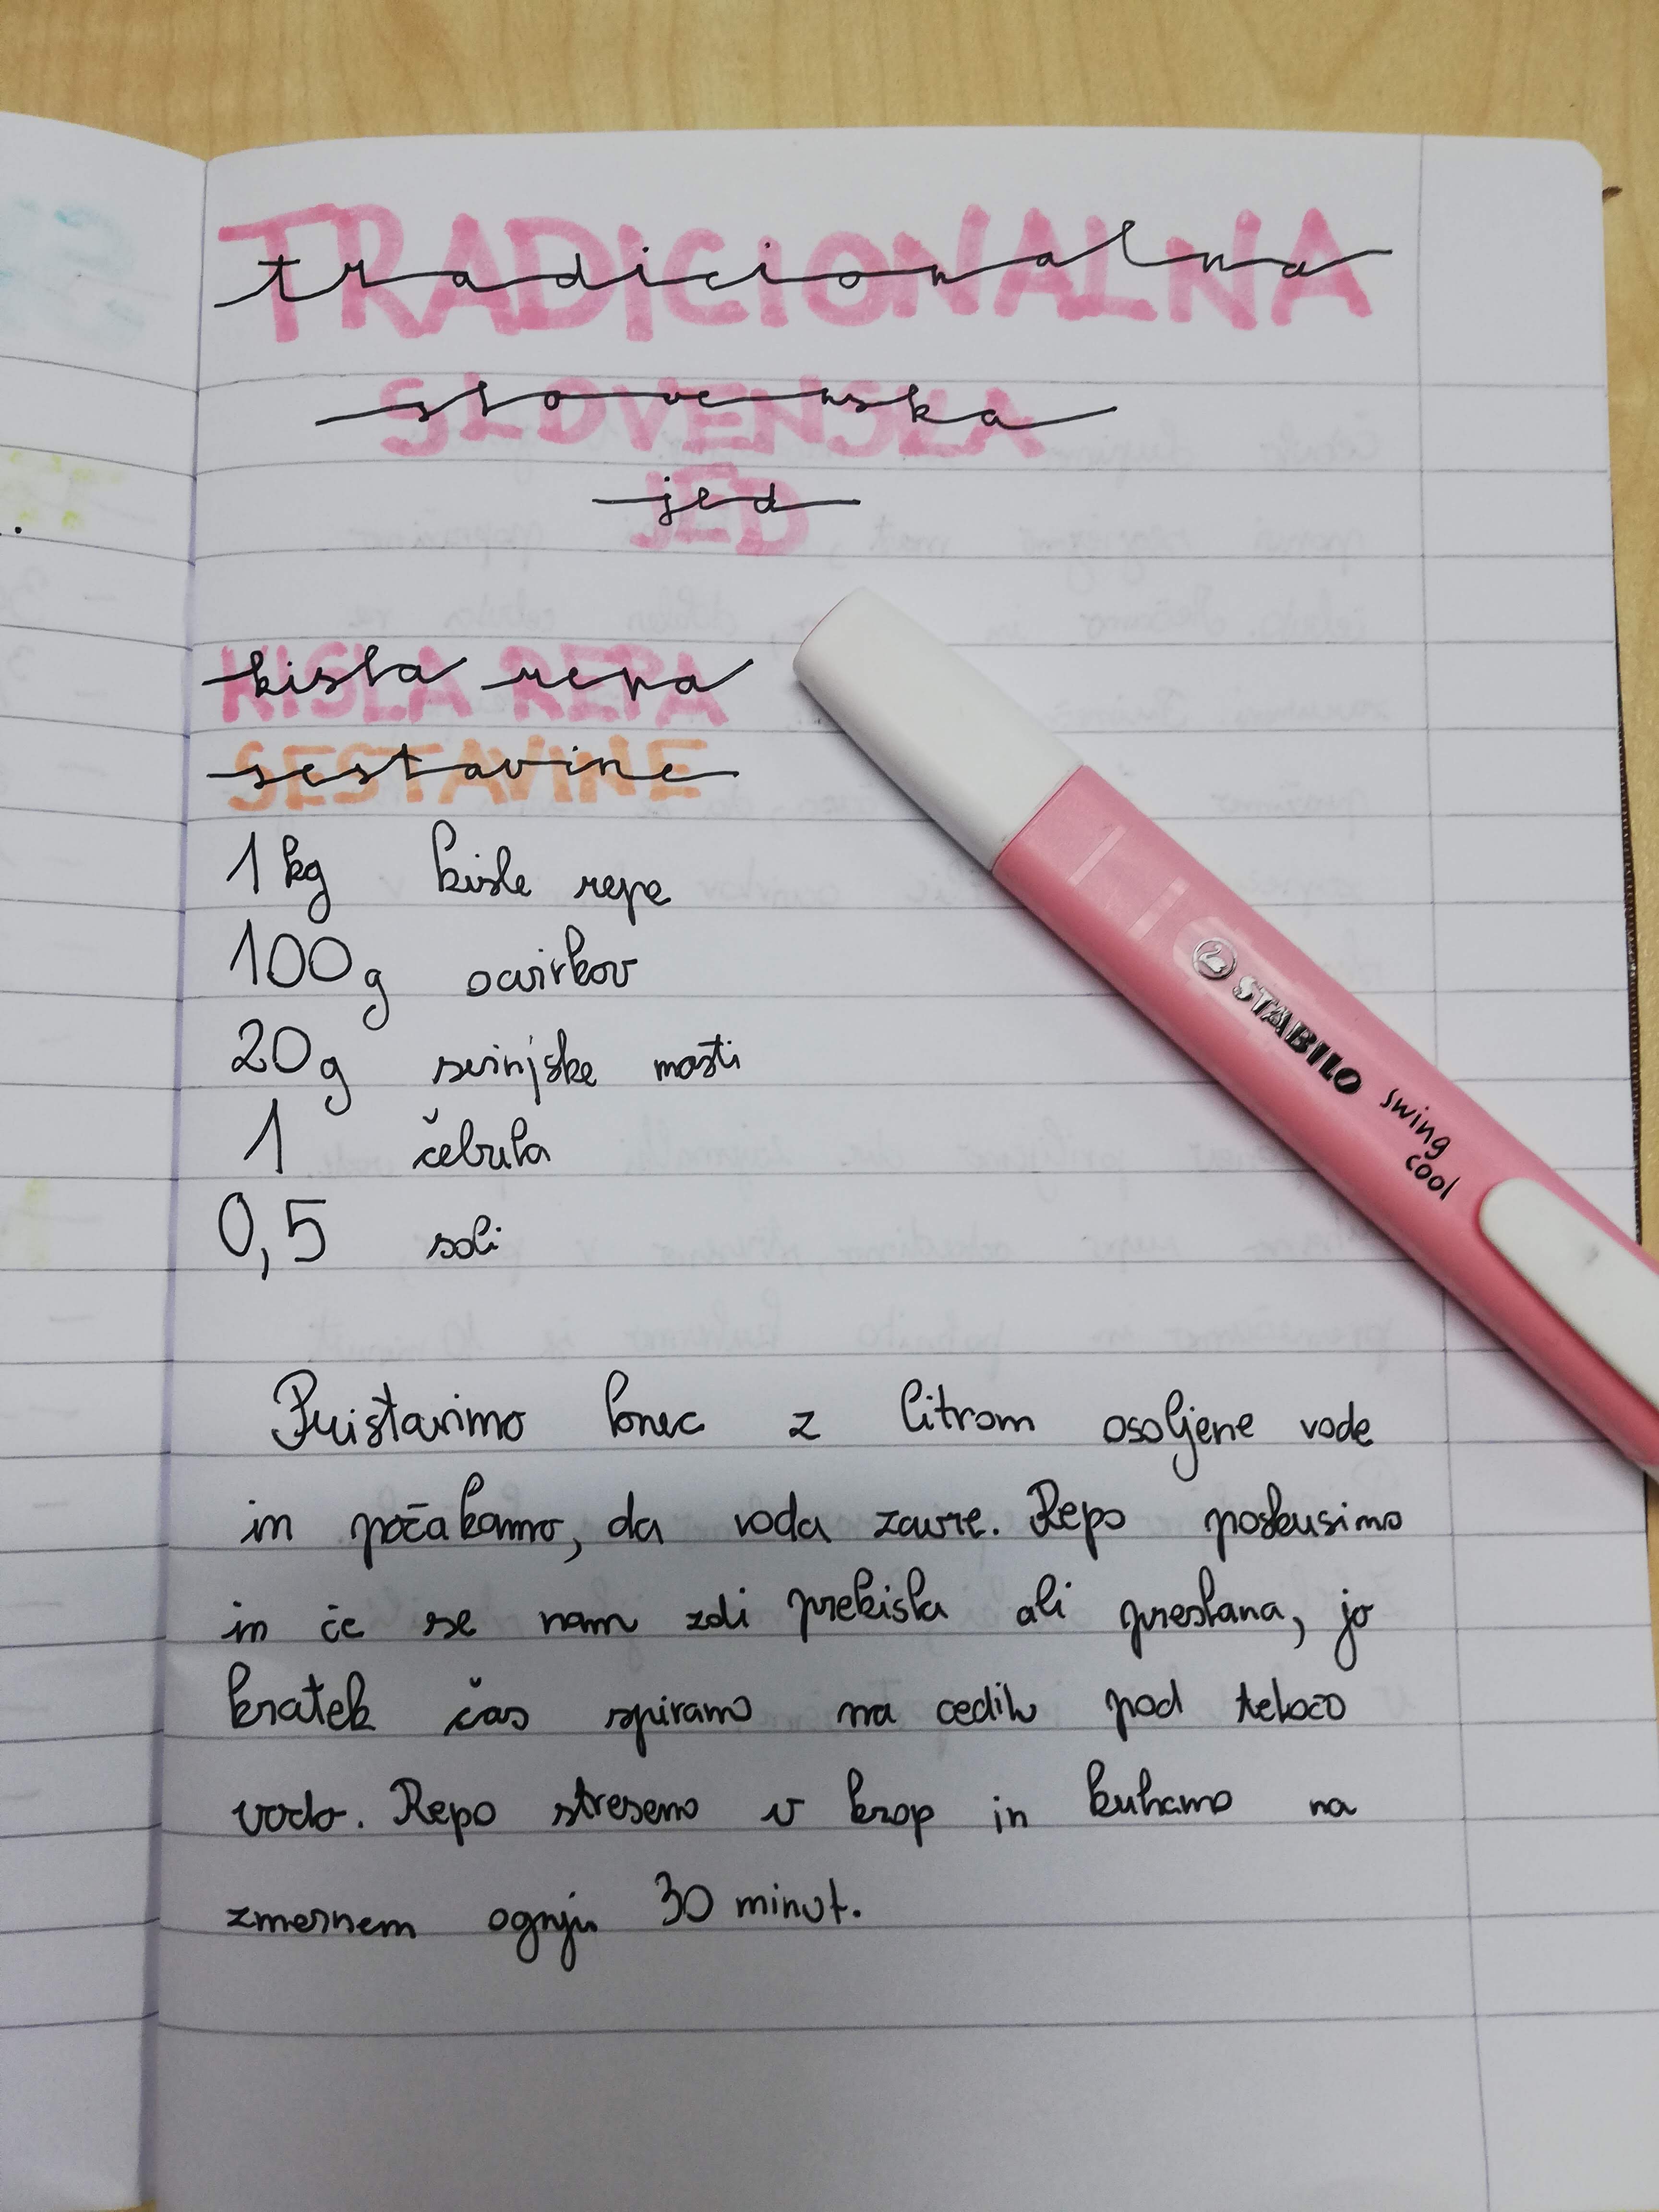 TRADICIONALNA
tradicionalna
SLOVENSKA
slovenska
JED
jed
KISLA REPA
kisla repa
SESTAVINE
sestavine
1 kg kisle repe
100 g ocvirkov
20 g svinjske masti
1 čebula
0,5 soli
STABILO swing cool
Pristavimo lonec z litrom osoljene vode
in počakamo, da voda zavre. Repo poskusimo
in če se nam zdi prekisla ali preslana, jo
kratek čas spiramo na cedilu pod tekočo
vodo. Repo stresemo v krop in kuhamo na
zmernem ognju 30 minut.